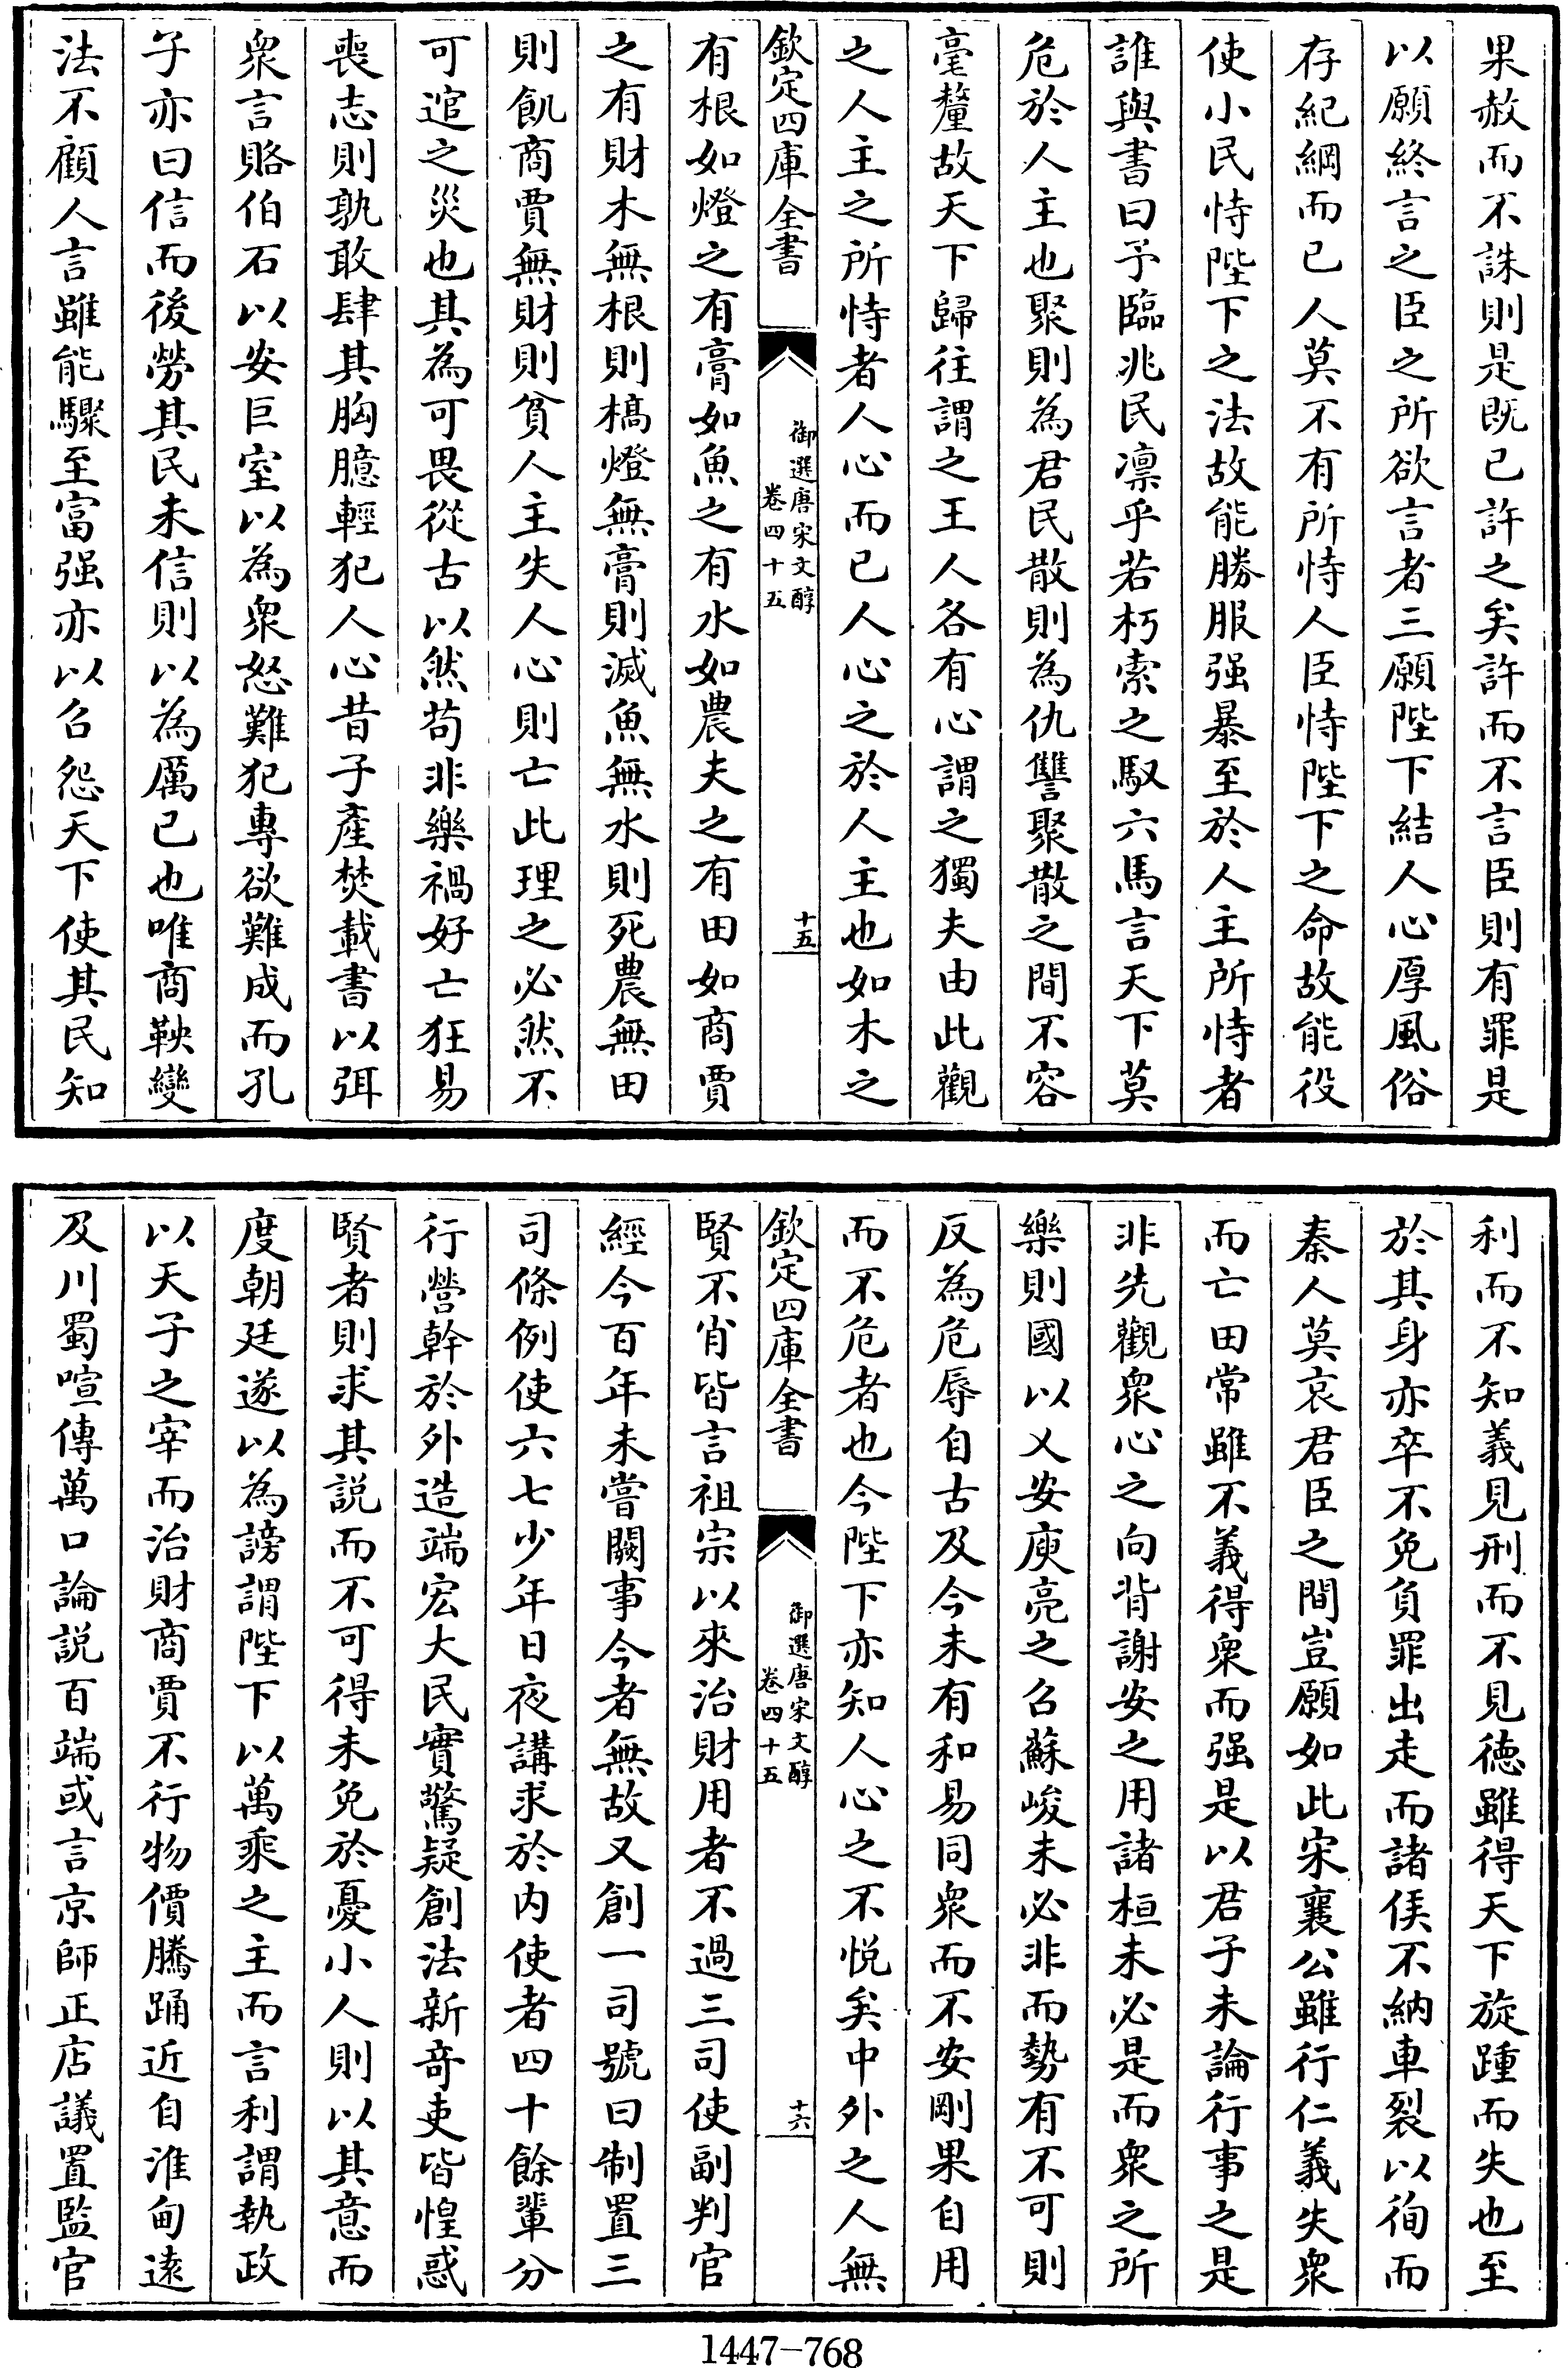 果赦而不誅則是既已許之矣許而不言臣則有罪是
以願終言之臣之所欲言者三願陛下結人心厚風俗
存紀綱而已人莫不有所恃人臣恃陛下之命故能役
使小民恃陛下之法故能勝服强暴至於人主所恃者
誰與書曰予臨兆民凛乎若朽索之馭六馬言天下莫
危於人主也聚則為君民散則為仇讐聚散之間不容
毫釐故天下歸往謂之王人各有心謂之獨夫由此觀
之人主之所恃者人心而已人心之於人主也如木之
欽定四庫全書
御選唐宋文醇
卷四十五
十五
有根如燈之有膏如魚之有水如農夫之有田如商賈
之有財木無根則槁燈無膏則滅魚無水則死農無田
則飢商賈無財則貧人主失人心則亡此理之必然不
可逭之災也其為可畏從古以然苟非樂禍好亡狂易
喪志則孰敢肆其胸臆輕犯人心昔子產焚載書以弭
衆言賂伯石以安巨室以為衆怒難犯專欲難成而孔
子亦曰信而後勞其民未信則以為厲已也唯商鞅變
法不顧人言雖能驟至富强亦以召怨天下使其民知
利而不知義見刑而不見徳雖得天下旋踵而失也至
於其身亦卒不免負罪出走而諸侯不納車裂以徇而
秦人莫哀君臣之間豈願如此宋襄公雖行仁義失衆
而亡田常雖不義得衆而强是以君子未論行事之是
非先觀衆心之向背謝安之用諸桓未必是而衆之所
樂則國以乂安庾亮之召蘇峻未必非而勢有不可則
反為危辱自古及今未有和易同衆而不安剛果自用
而不危者也今陛下亦知人心之不悦矣中外之人無
欽定四庫全書
御選唐宋文醇
卷四十五
十六
賢不肖皆言祖宗以來治財用者不過三司使副判官
經今百年未嘗闕事今者無故又創一司號曰制置三
司條例使六七少年日夜講求於内使者四十餘輩分
行營幹於外造端宏大民實驚疑創法新竒吏皆惶惑
賢者則求其説而不可得未免於憂小人則以其意而
度朝廷遂以為謗謂陛下以萬乘之主而言利謂執政
以天子之宰而治財商賈不行物價騰踊近自淮甸遠
及川蜀喧傳萬口論説百端或言京師正店議置監官
1447-768